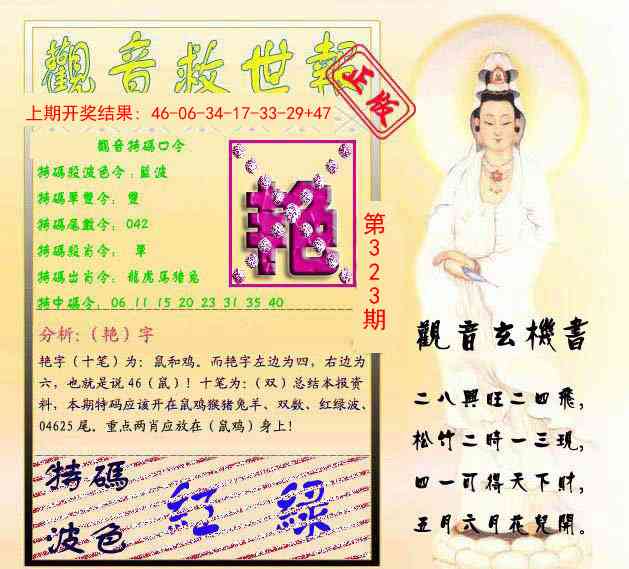 觀音救世報
正版
上期开奖结果：46-06-34-17-33-29+47
觀音特碼口令
特碼段波色令：藍波
特碼單雙令：雙
特碼尾數令：042
特碼段肖令：單
特碼出肖令：龍虎馬猪兔
特中碼令：06 11 15 20 23 31 35 40
艳
第323期
分析:（艳）字
艳字（十笔）为：鼠和鸡。而艳字左边为四，右边为
六，也就是说46（鼠）！十笔为：（双）总结本报资
料，本期特码应该开在鼠鸡猴猪兔羊、双数、红绿波、
04625尾。重点两肖应放在（鼠鸡）身上！
特碼
波色
紅 綠
觀音玄機書
二八興旺二四飛，
松竹二時一三現，
四一可得天下財，
五月六月花兒開。